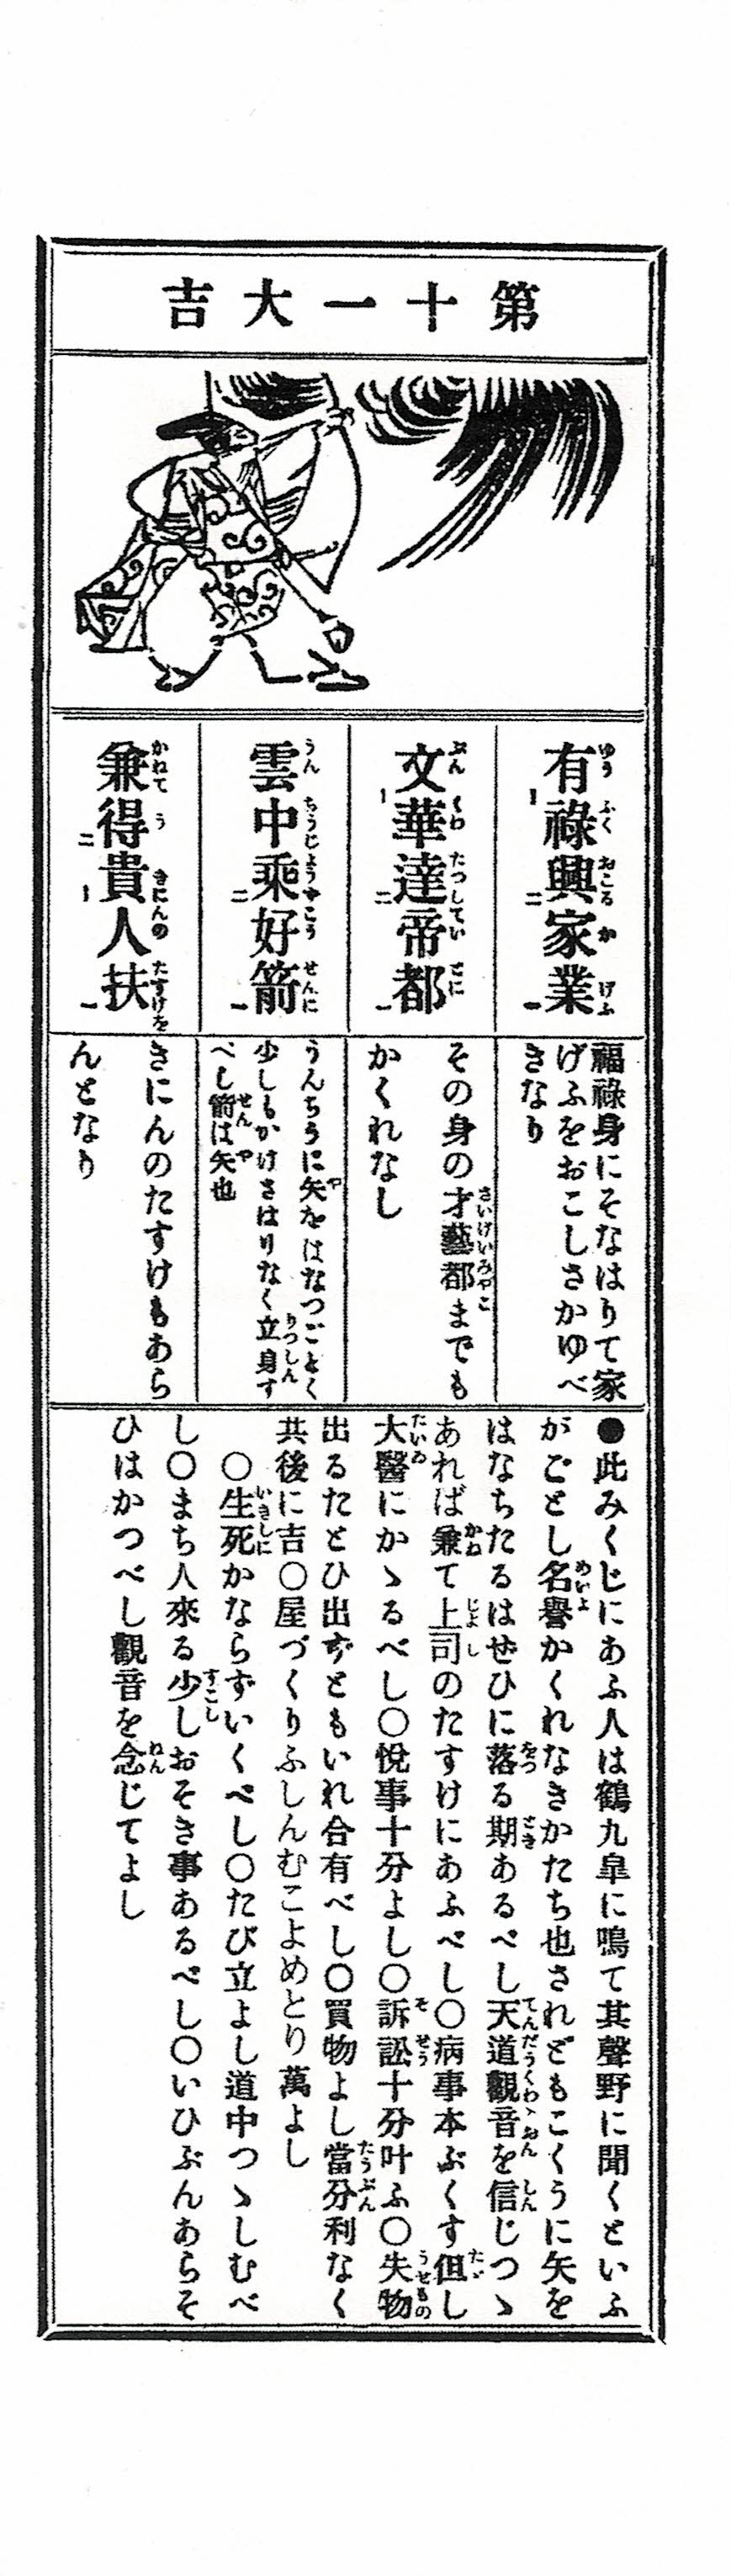 第十一大吉
有祿興家業
文華達帝都
雲中乘好箭
兼得貴人扶
福祿身にそなはりて家
げふをおこしさかゆべ
きなり
その身の才藝都までも
かくれなし
うんちうに矢をはなつごとく
少しもかけさはりなく立身す
べし箭は矢也
きにんのたすけもあら
んとなり
●此みくじにあふ人は鶴九皐に鳴て其聲野に聞くといふ
がごとし名譽かくれなきかたち也されどもこくうに矢を
はなちたるはぜひに落る期あるべし天道觀音を信じつゝ
あれば兼て上司のたすけにあふべし〇病事本ぶくす但し
大醫にかゝるべし〇悅事十分よし〇訴訟十分叶ふ〇失物
出るたとひ出ずともいれ合有べし〇買物よし當分利なく
共後に吉〇屋づくりふしんむこよめとり萬よし
〇生死かならずいくべし〇たび立よし道中つゝしむべ
し〇まち人來る少しおそき事あるべし〇いひぶんあらそ
ひはかつべし觀音を念じてよし